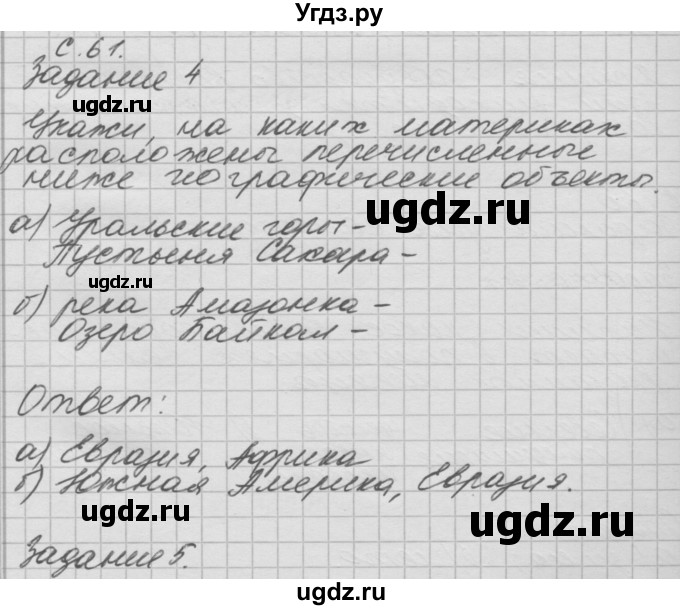 Угдз.ру
С. 61.
Задание 4
ugdz.ru
Укажи, на каких материках
расположены перечисленные
ниже географические объекты.
ugdz.ru
а) Уральские горы -
Пустыня Сахара -
ugdz.ru
б) река Амазонка -
Озеро Байкал -
Ответ:
а) Евразия, Африка
б) Южная Америка, Евразия.
ugdz.ru
ugdz.ru
Задание 5.
ugdz.ru